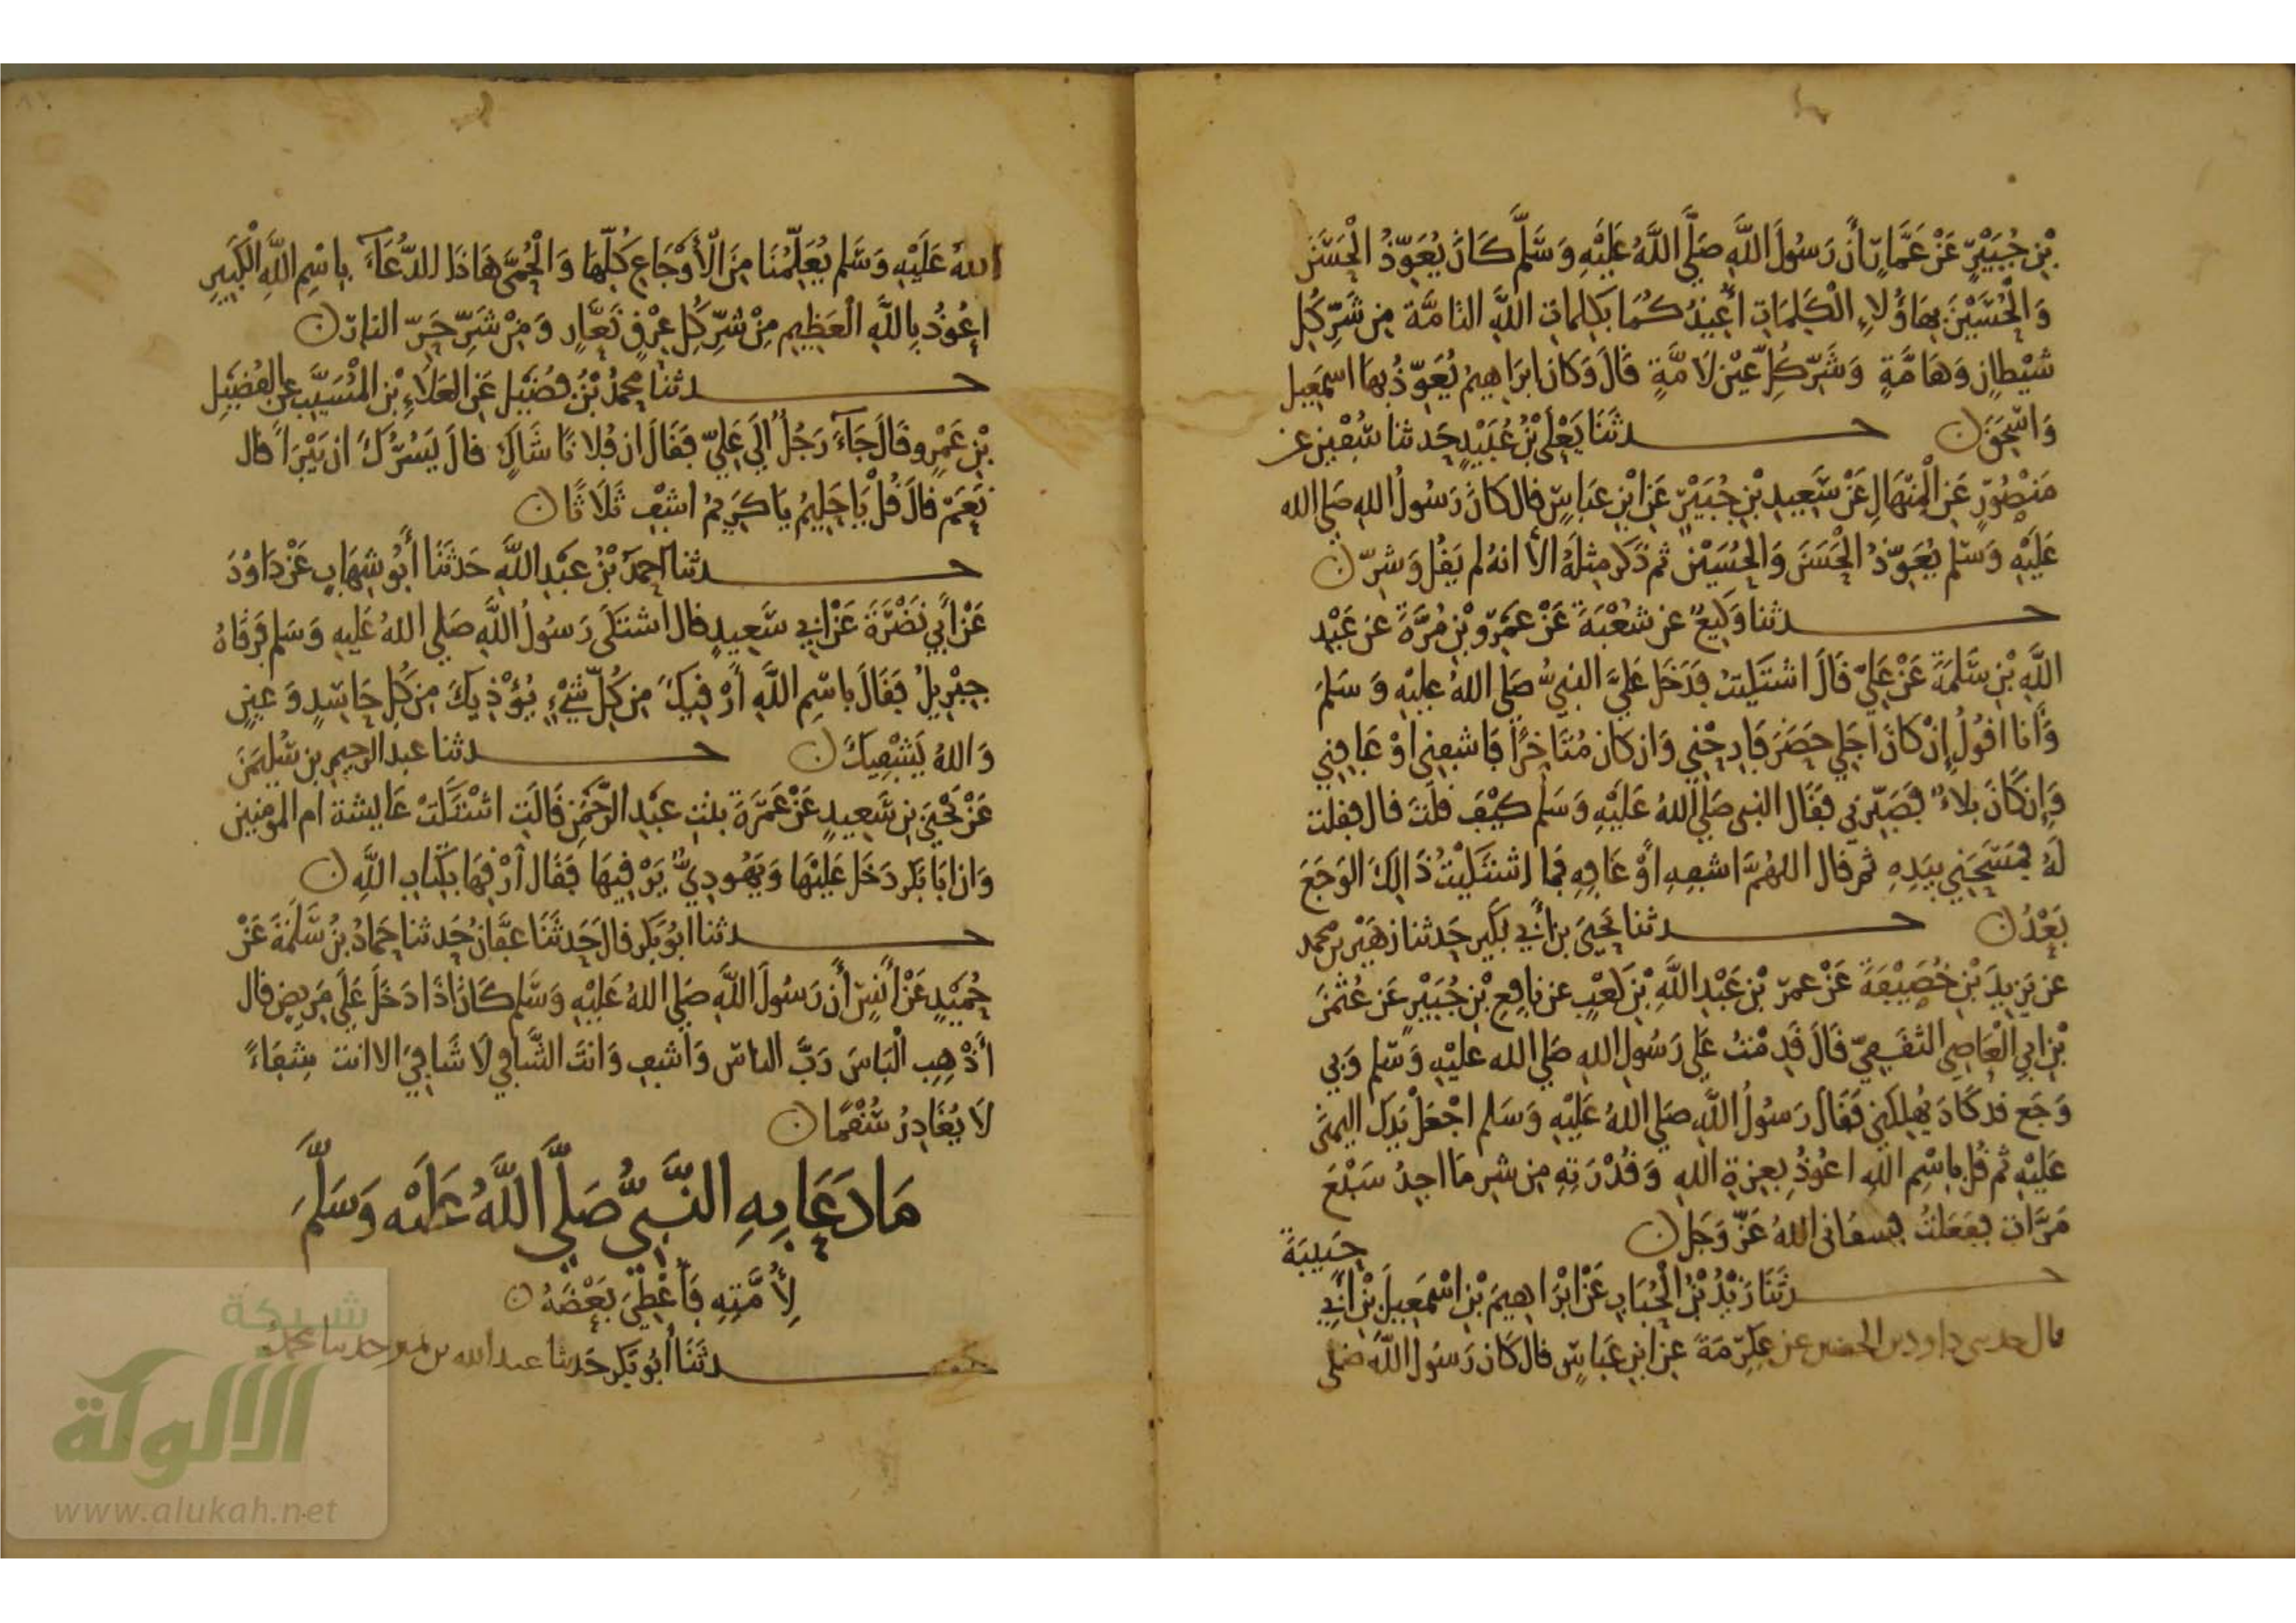 بْنِ جُبَيْرٍ عَنْ عَمَّارٍ أَنَّ رَسُولَ اللَّهِ صَلَّى اللَّهُ عَلَيْهِ وَسَلَّمَ كَانَ يُعَوِّذُ الْحَسَنَ
وَالْحُسَيْنَ بِهَاؤُلَاءِ الْكَلِمَاتِ أُعِيذُكُمَا بِكَلِمَاتِ اللَّهِ التَّامَّةِ مِن شَرِّ كُلِّ
شَيْطَانٍ وَهَامَّةٍ وَشَرِّ كُلِّ عَيْنٍ لَامَّةٍ قَالَ وَكَانَ ابْرَاهِيمُ يُعَوِّذُ بِهَا اسمَعِيل
وَاسْحَقَ ۝ حدثَنَا يَعْلَى بْنُ عُبَيْدٍ حَدثنا سُفْيَن عن
مَنْصُورٍ عَنِ الْمِنْهَالِ عَنْ سَعِيدِ بْنِ جُبَيْرٍ عَنِ ابْنِ عَبَاسٍ قال كَانَ رَسُولُ اللهِ صَلى الله
عَلَيْهِ وَسَلم يُعَوِّذُ الْحَسَنَ وَالْحُسَيْنَ ثم ذَكَر مِثْلَهُ الا انهُ لم يَقُل وَشرِّ ۝
حدثنا وَكِيعٌ عن شُعْبَةَ عَنْ عَمْرِو بْنِ مُرَّةَ عَن عَبْدِ
اللَّهِ بْنِ سَلَمَةَ عَنْ عَلِيٍّ قَالَ اشتَكَيْتُ فَدَخَلَ عَلَيَّ النبِيُّ صَلَى اللهُ عليهِ وَسَلمَ
وَأَنا اقُولُ إِنْ كَانَ أَجَلِي حَضَرَ فَارِحْنِي وَان كان مُتَأَخِّرًا فَاشفِنِي اوْ عَافِنِي
وَإِن كَانَ بَلاءً فَصَبِّرْنِي فَقَال النبي صَلَى اللهُ عَلَيْهِ وَسَلم كَيْفَ قلْتَ قال فقلت
لَهُ فَمَسَحَنِي بِيَدِهِ ثم قال اللهُمَّ اشفِهِ اوْ عَافِهِ فما اشتَكَيْتُ ذَالِكَ الوَجَعَ
بَعْدُ ۝ حدثنا يَحْيَى بن أَبي بُكَيْر حَدثنا زهَيْر بن محمد
عن يَزِيدَ بْنِ خُصَيْفَةَ عَنْ عمرَ بْنِ عَبْدِ اللَّهِ بْنِ كَعْبٍ عن نافِعِ بْنِ جُبَيْرٍ عَن عُثْمَنَ
بْنِ ابِي الْعَاصِي الثقَفِيِّ قَالَ قَدِمْتُ عَلَى رَسُولِ اللهِ صَلى الله عليهِ وَسَلم وَبِي
وَجَع قد كَادَ يُهلِكُنِي فَقَال رَسُولُ اللَّهِ صَلى اللهُ عَلَيْهِ وَسَلم اجْعَلْ يَدكَ اليمنَى
عَلَيْهِ ثم قُل بِاسْمِ اللهِ اعُوذُ بِعِزةِ اللهِ وَقُدْرَتِهِ مِن شر مَا اجِدُ سَبْعَ
مَرَّاتٍ فَفَعَلتُ فشفانى اللهُ عَزَّ وَجَل ۝ حَبِيبَةَ
حدثَنَا زَيْدُ بْنُ الْحُبَابِ عَنْ ابْرَاهِيمَ بْنِ اسْمَعِيلَ بْنِ أَبِي
قال حدثني داود بن الحصين عن عِكْرِمَةَ عنِ ابنِ عَبَاسٍ قال كَان رَسُولُ اللَّه صَلى
اللهُ عَلَيْهِ وَسَلم يُعَلِّمُنَا مِنَ الْأَوْجَاعِ كُلِّهَا وَالْحُمَّى هَاذَا الدُّعَآءَ بِاسْمِ اللَّهِ الْكَبِيرِ
اعُوذُ بِاللَّهِ الْعَظِيمِ مِنْ شَرِّ كُلِّ عِرْقٍ نَعَّارٍ وَمِنْ شَرِّ حَرِّ النارِ ۝
حدثنا محمدُ بْنُ فُضَيْل عَنِ العَلَاءِ بْنِ الْمُسَيَّبِ عن الفُضَيْلِ
بْنِ عَمْرٍو قَالَ جَآءَ رَجُلٌ الَى عَلِيٍّ فَقَالَ ان فُلَانًا شَاكٍ قالَ يَسُرُّكَ ان يَبْرَأَ قال
نَعَمْ قالَ قُلْ يَا حَلِيمُ يَا كَرِيمُ اشفِ ثَلَاثًا ۝
حدثنا احمدُ بْنُ عَبْدِ اللَّهِ حَدَثَنَا أَبُو شِهَابٍ عَنْ دَاوُدَ
عَنْ أَبِي نَضْرَةَ عَنْ ابِي سَعِيدٍ قال اشتَكَى رَسُولُ اللَّهِ صَلى اللهُ عَلَيهِ وَسَلم فَرَقَاهُ
جِبْرِيلُ فَقَالَ بِاسْمِ اللَّهِ أَرْقِيكَ مِن كُلِّ شَيْءٍ يُؤْذِيكَ مِن كُلِّ حَاسِدٍ وَعينٍ
وَاللهُ يَشْفِيكَ ۝ حدثنا عبد الرحيم بن سُلَيمَنَ
عَنْ يَحْيَى بنِ سَعِيدٍ عَنْ عَمْرَةَ بنتِ عَبْدِ الرَّحْمَنِ قَالَتِ اشْتَكَتْ عَايشة ام المومنين
وَان ابَا بَكر دَخَلَ عَلَيْهَا وَيَهُودِيَّةٌ تَرْقِيهَا فَقَال أَرْقِهَا بِكِتَابِ اللَّهِ ۝
حدثنا ابُو بَكر قال حَدثَنَا عفَّانُ حَدثنا حَمادُ بنُ سَلَمَةَ عَنْ
حُمَيْدٍ عَنْ أَنَسٍ أَن رَسُولَ اللَّهِ صَلى اللهُ عَلَيْهِ وَسَلم كَانَ اذَا دَخَلَ عَلَى مَريضٍ قال
أَذْهِبِ الْبَاسَ رَبَّ الناسِ وَاشفِ وَانتَ الشَّافِي لَا شَافِيَ الا انت شِفَاءً
لَا يُغَادِرُ سُقْمًا ۝
مَا دَعَا بِهِ النَّبِيُّ صَلَّى اللَّهُ عَلَيْه وَسَلَّمَ
لِأُمَّتِهِ فَأُعْطِيَ بَعْضَهُ ۝
حدثَنَا أَبُو بَكر حَدثنا عبد الله بن نمير حدثنا محمد
شبكة
الألوكة
www.alukah.net